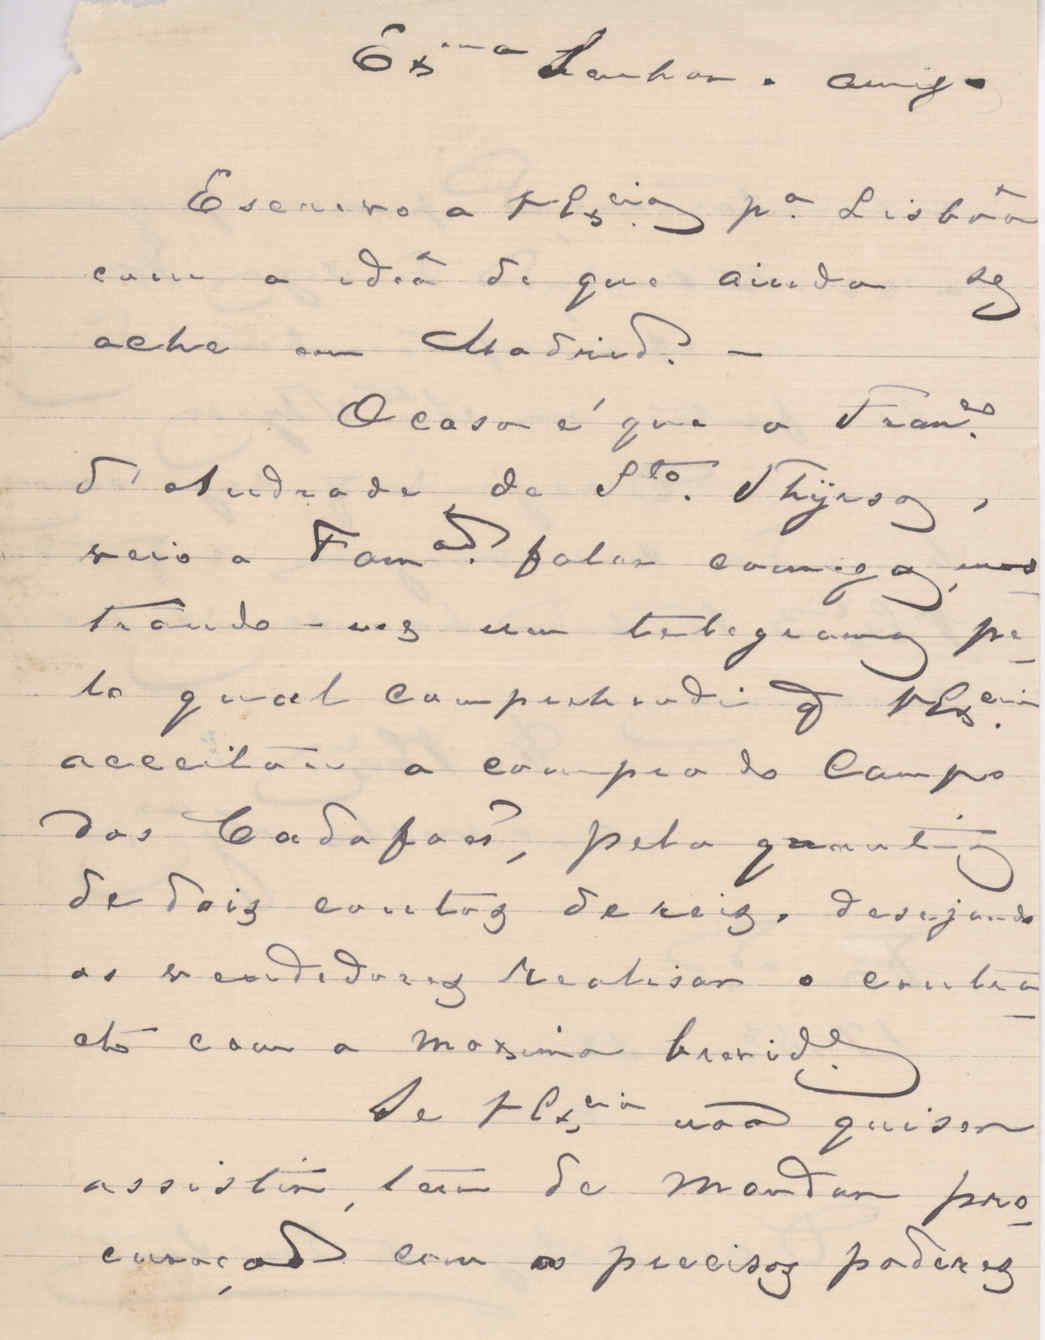 Exmo Senhor e amigo
Escrevo a V Excia pa Lisbôa
com a ideâ de que ainda se
ache em Madrid. —
O caso é que o Franco.
d'Andrade, de Sto. Thyrso,
veio a Famão. falar comigo, mos
trando-me um telegrama pe-
lo qual comprehendi q V Excia
acceitou a compra do Campo
dos Cadafaes, pela quantia
de dois contos de reis, desejando
os vendedores realisar o contra-
cto com a maxima brevide.
Se V Excia não quiser
assistir, tem de mandar pro-
curação com os precisos poderes